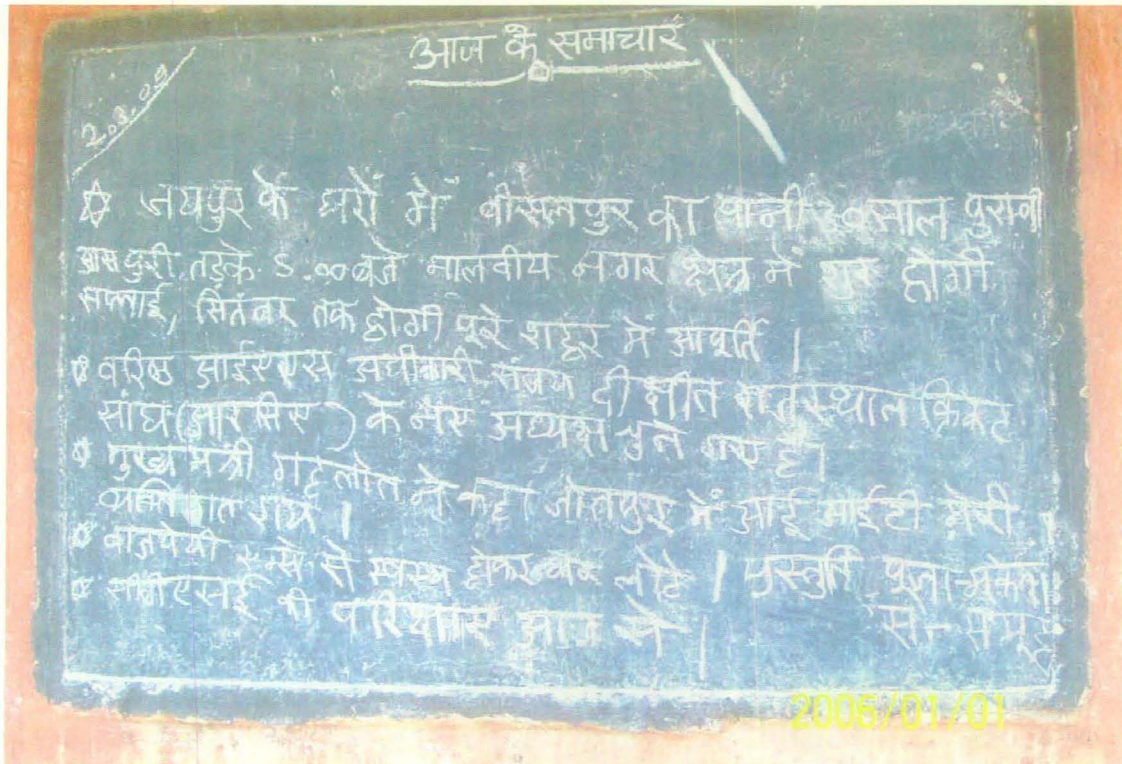 आज के समाचार
2.3.09
जयपुर के घरों में बीसलपुर का पानी साल पुरानी
आस पुरी तड़के 5.00 बजे मालवीय नगर क्षेत्र में शुरू होगी
सप्लाई, सितंबर तक होगी पूरे शहर में आपूर्ति ।
वरिष्ठ आईएएस अधीकारी संजय दीक्षीत राजस्थान क्रिकेट
सांघ (आरसिए) के नए अध्यक्ष चुने गए है।
मुख्य मंत्री गहलोत ने कहा जोधपुर में आई आईटी मेरी
व्यक्तिगत राय ।
वाजपेयी एम्स से स्वस्थ होकर घर लोटे । प्रस्तुति पूजा
सीबीएसई की परिक्षाए आज से । समुह
2006/01/01